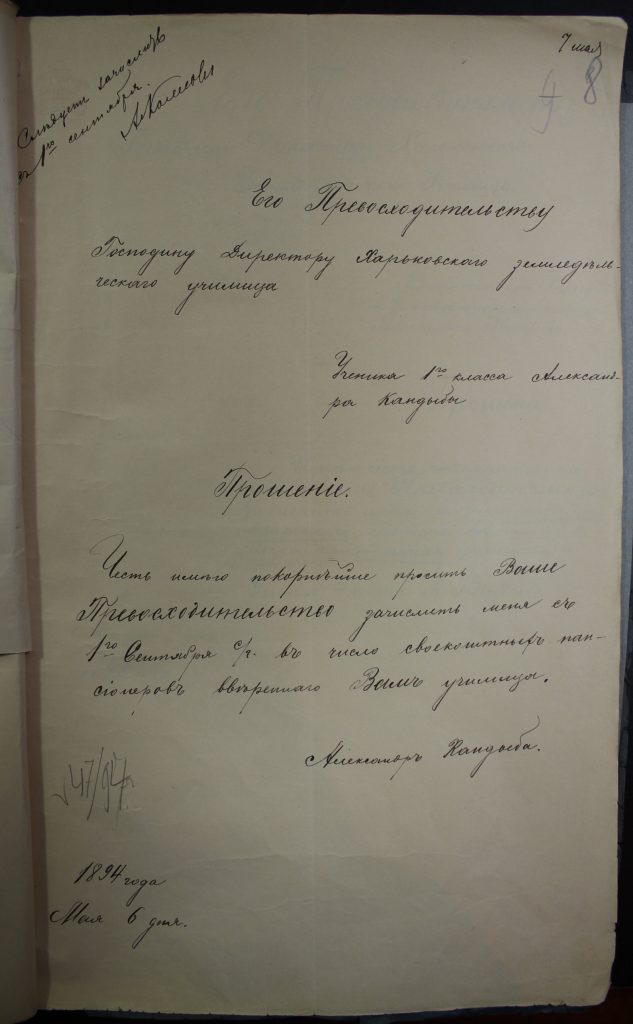 7 мая
8
зачислить
съ 1го сентября.
Его Превосходительству
Господину Директору Харьковскаго земледѣль-
ческаго училища
Ученика 1го класса Александ-
ра Кандыбы
Прошеніе.
Честь имѣю покорнѣйше просить Ваше
Превосходительство зачислить меня съ
1го Сентября с/г. въ число своекоштныхъ пан-
сіонеровъ ввѣреннаго Вамъ училища.
Александръ Кандыба.
47/94
1894 года
Мая 6 дня.